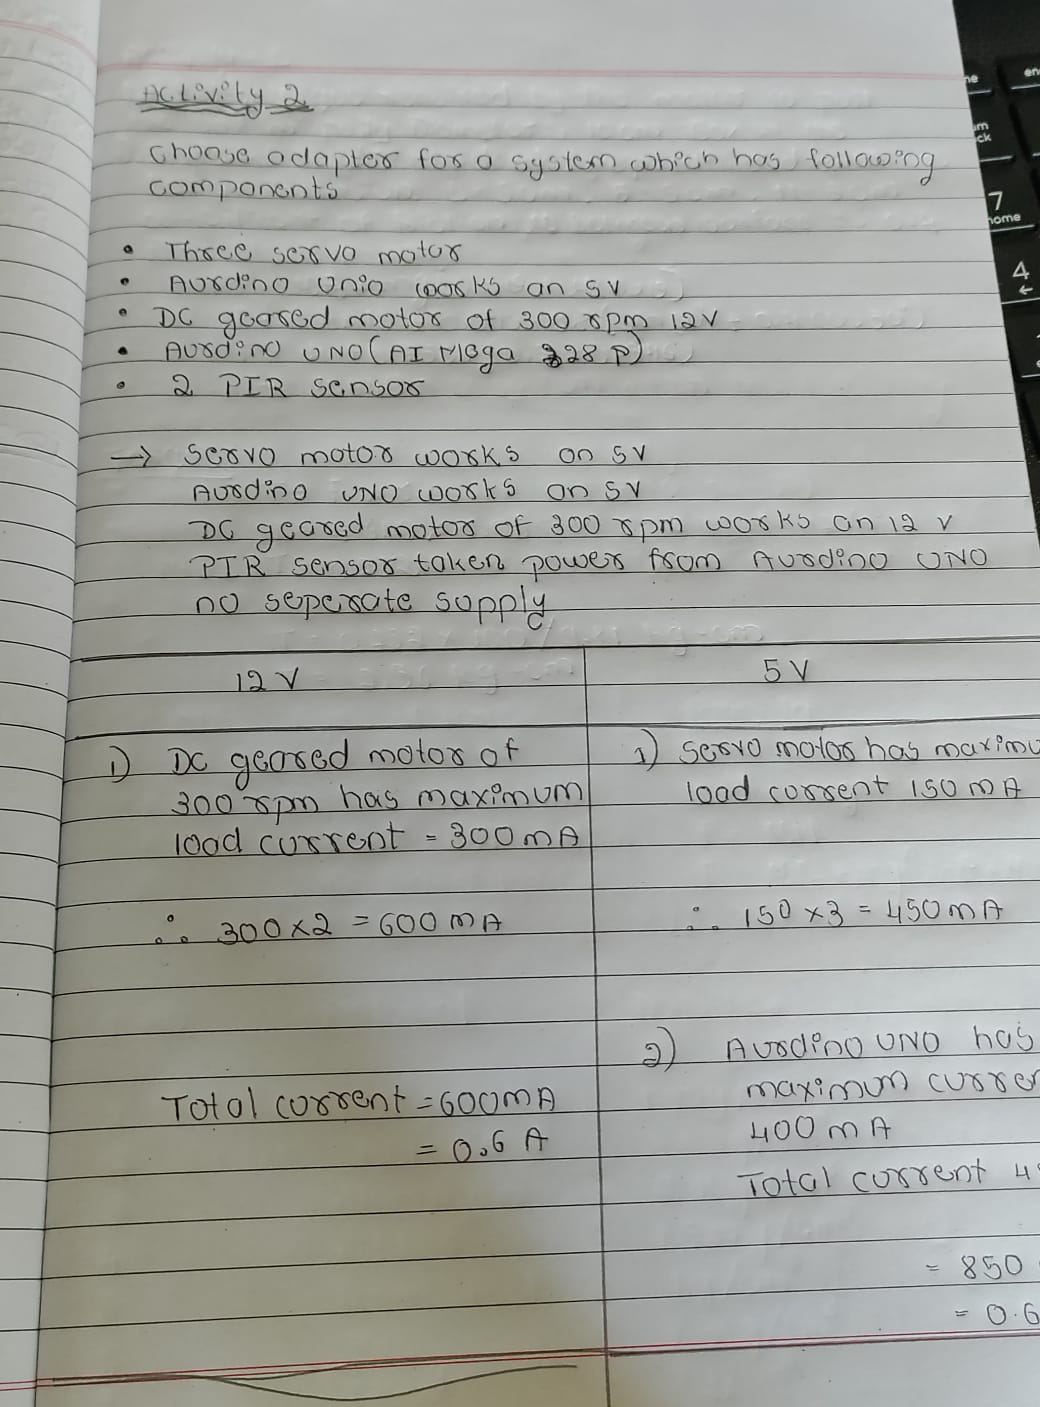 Activity 2
Choose adapter for a system which has following
components
• Three servo motor
• Aurdino Unio works on 5V
• DC geared motor of 300 rpm 12V
• Aurdino UNO (AT Mega 328 P)
• 2 PIR sensor
→ Servo motor works on 5V
Aurdino UNO works on 5V
DC geared motor of 300 rpm works on 12 V
PIR sensor taken power from Aurdino UNO
no seperate supply
12 V
5 V
1) DC geared motor of
300 rpm has maximum
load current = 300 mA
∴ 300 x 2 = 600 mA
Total current = 600mA
= 0.6 A
1) Servo motor has maximu
load current 150 mA
∴ 150 x 3 = 450 mA
2) Aurdino UNO has
maximum curre
400 mA
Total current 4
= 850
= 0.6
7
home
4
←